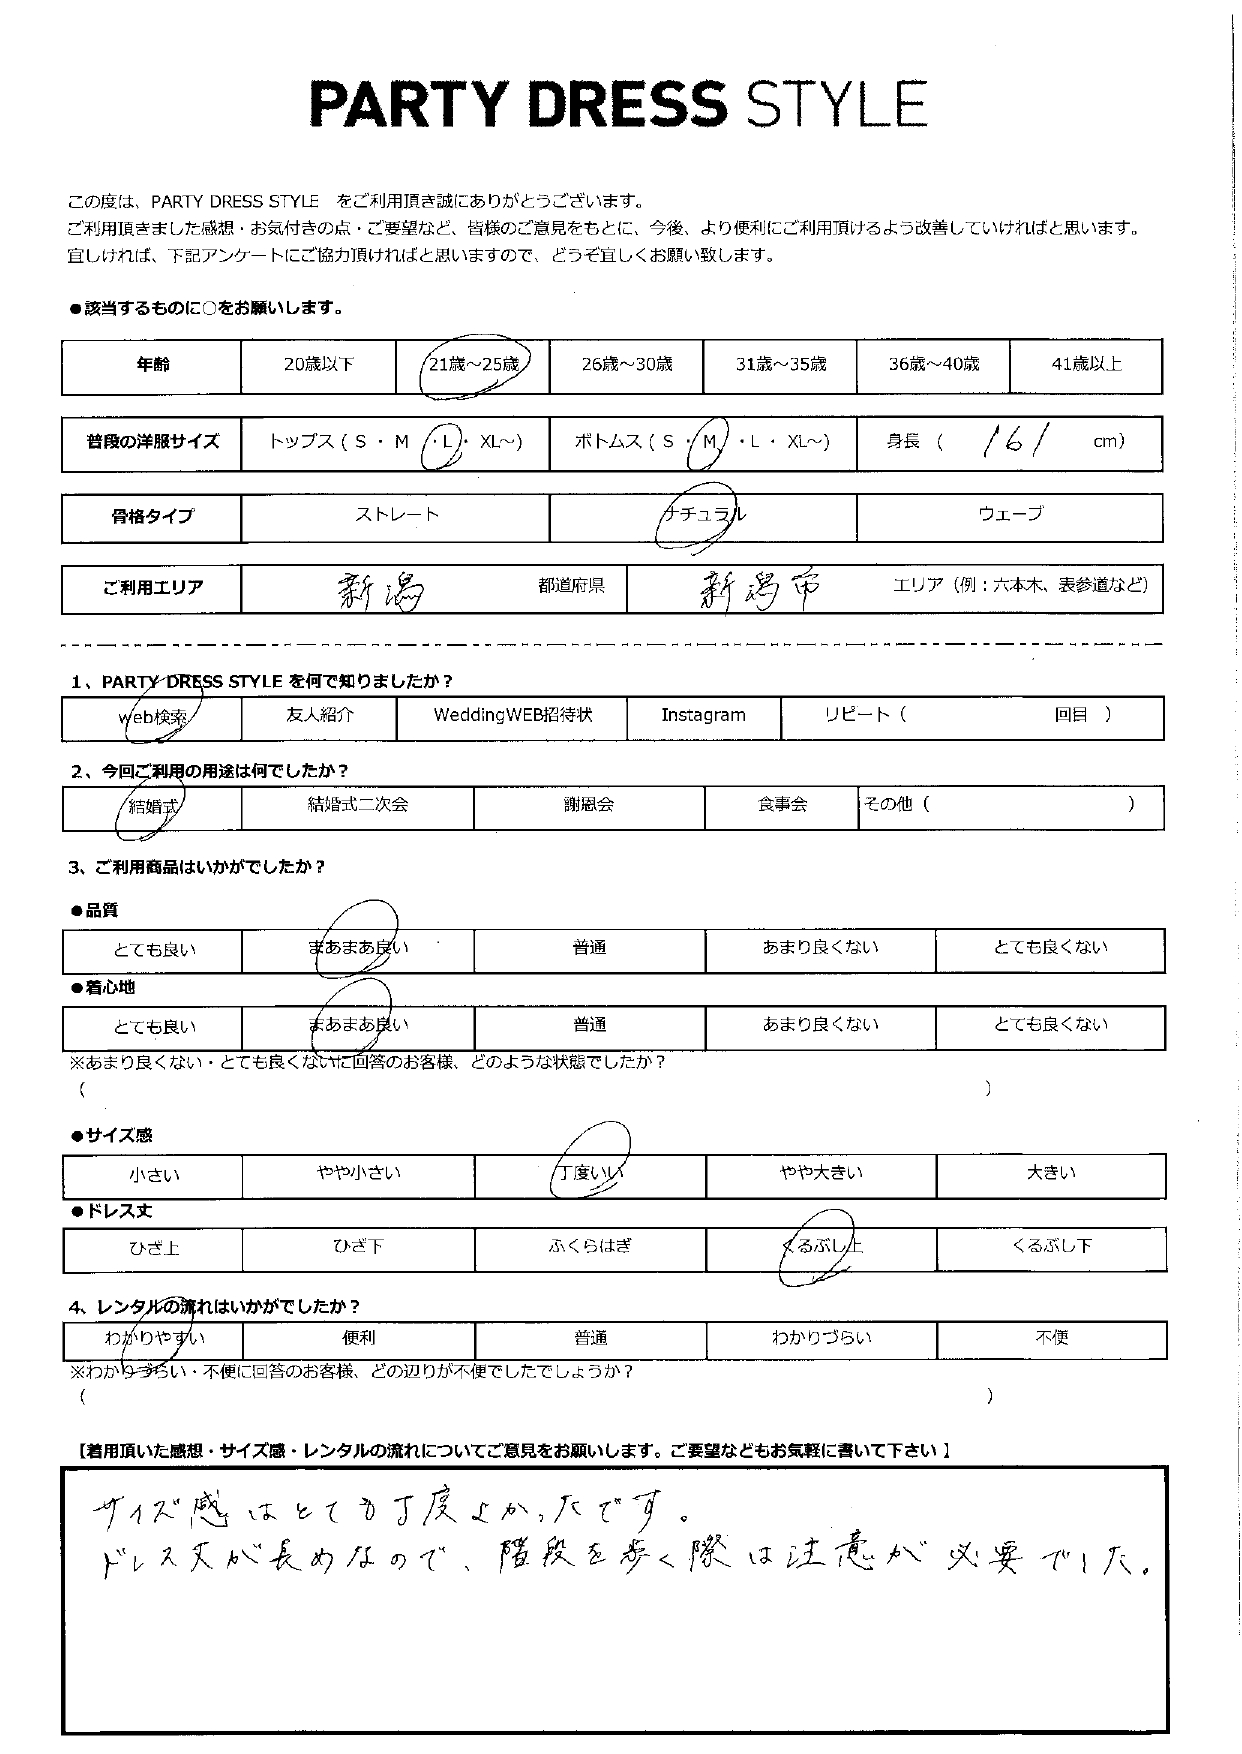 PARTY DRESS STYLE
この度は、PARTY DRESS STYLE をご利用頂き誠にありがとうございます。
ご利用頂きました感想・お気付きの点・ご要望など、皆様のご意見をもとに、今後、より便利にご利用頂けるよう改善していければと思います。
宜しければ、下記アンケートにご協力頂ければと思いますので、どうぞ宜しくお願い致します。
●該当するものに○をお願いします。
年齢 20歳以下 21歳～25歳 26歳～30歳 31歳～35歳 36歳～40歳 41歳以上
普段の洋服サイズ トップス ( S ・ M ・L・ XL～) ボトムス ( S ・M ・L ・ XL～) 身長 ( 161 cm)
骨格タイプ ストレート ナチュラル ウェーブ
ご利用エリア 新潟 都道府県 新潟市 エリア（例：六本木、表参道など）
1、PARTY DRESS STYLE を何で知りましたか？
web検索 友人紹介 WeddingWEB招待状 Instagram リピート（ 回目 ）
2、今回ご利用の用途は何でしたか？
結婚式 結婚式二次会 謝恩会 食事会 その他（ ）
3、ご利用商品はいかがでしたか？
●品質
とても良い まあまあ良い 普通 あまり良くない とても良くない
●着心地
とても良い まあまあ良い 普通 あまり良くない とても良くない
※あまり良くない・とても良くないに回答のお客様、どのような状態でしたか？
（ ）
●サイズ感
小さい やや小さい 丁度いい やや大きい 大きい
●ドレス丈
ひざ上 ひざ下 ふくらはぎ くるぶし上 くるぶし下
4、レンタルの流れはいかがでしたか？
わかりやすい 便利 普通 わかりづらい 不便
※わかりづらい・不便に回答のお客様、どの辺りが不便でしたでしょうか？
（ ）
【着用頂いた感想・サイズ感・レンタルの流れについてご意見をお願いします。ご要望などもお気軽に書いて下さい】
サイズ感はとても丁度よかったです。
ドレス丈が長めなので、階段を歩く際は注意が必要でした。